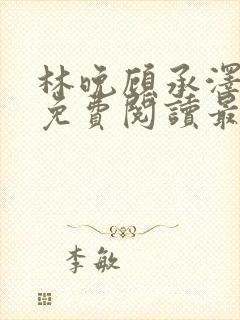 林晚顾承澤
免費閱讀最
李敏